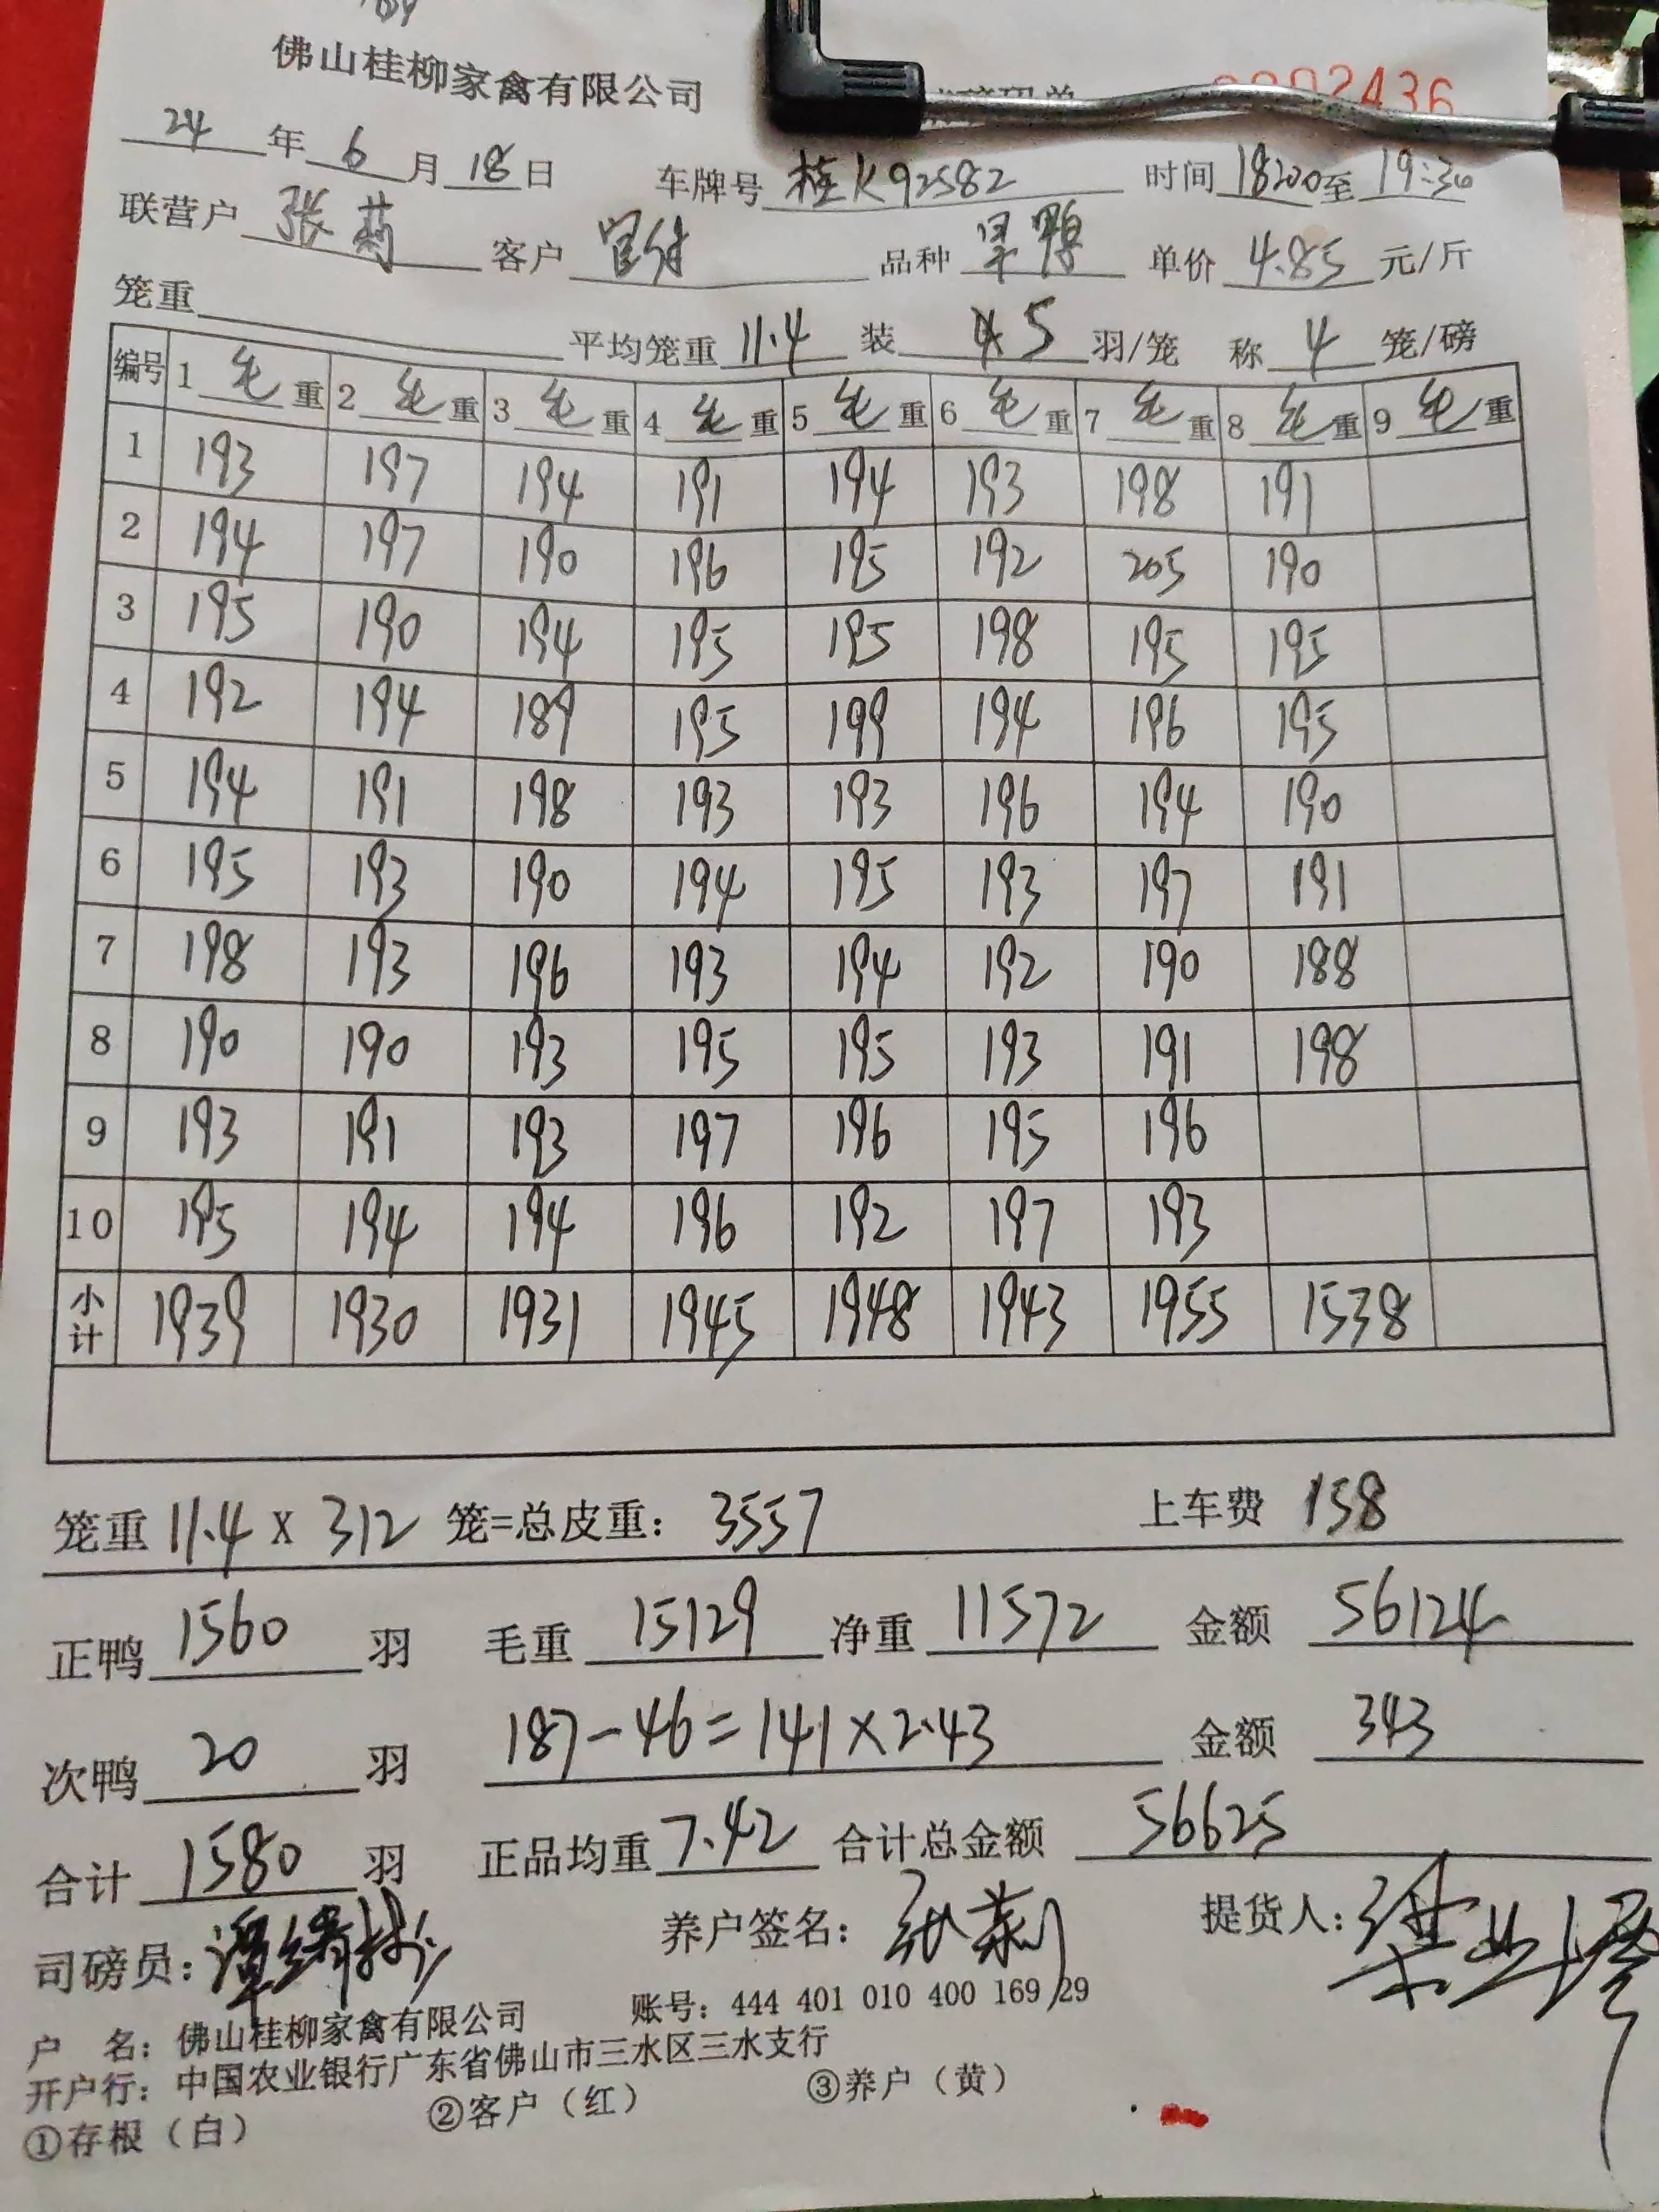 佛山桂柳家禽有限公司
2436
24 年 6 月 18 日 车牌号 桂K92582 时间 18:00 至 19:30
联营户 张莉 客户 品种 旱鸭 单价 4.85 元/斤
笼重 平均笼重 11.4 装 5 羽/笼 称 4 笼/磅
编号 1 毛 重 2 毛 重 3 毛 重 4 毛 重 5 毛 重 6 毛 重 7 毛 重 8 毛 重 9 毛 重
1 193 197 194 191 194 193 198 191
2 194 197 190 196 195 192 205 190
3 195 190 194 195 195 198 195 195
4 192 194 189 195 199 194 196 195
5 194 191 198 193 193 196 194 190
6 195 193 190 194 195 193 197 191
7 198 193 196 193 194 192 190 188
8 190 190 193 195 195 193 191 198
9 193 191 193 197 196 195 196
10 195 194 194 196 192 197 193
小计 1939 1930 1931 1945 1948 1943 1955 1538
笼重 11.4 X 312 笼=总皮重: 3557 上车费 158
正鸭 1560 羽 毛重 15129 净重 11572 金额 56124
次鸭 20 羽 187-46=141×2.43 金额 343
合计 1580 羽 正品均重 7.42 合计总金额 56625
司磅员: 养户签名: 张莉 提货人:
户 名: 佛山桂柳家禽有限公司 账号: 444 401 010 400 169 29
开户行: 中国农业银行广东省佛山市三水区三水支行
①存根（白） ②客户（红） ③养户（黄）